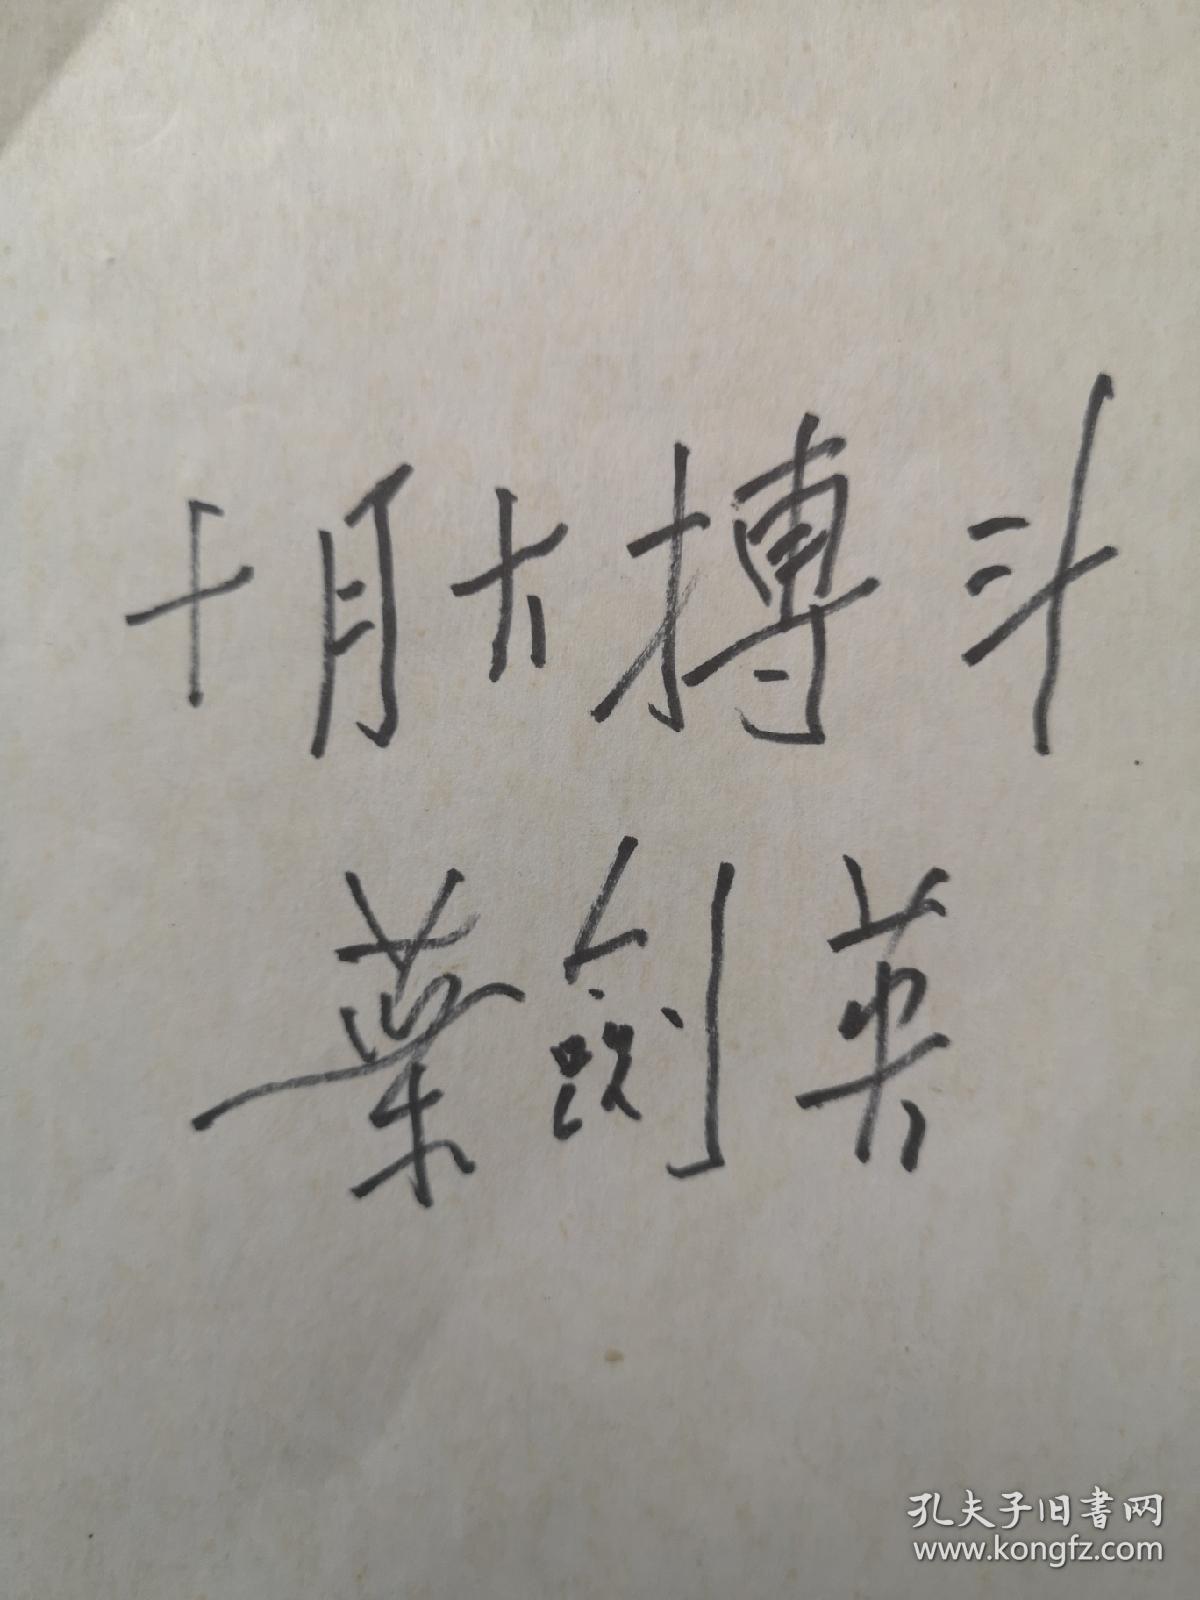 十月大搏斗
葉劍英
孔夫子旧書网
www.kongfz.com